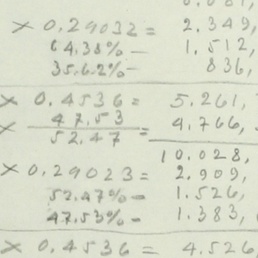 × 0.29032 = 2.349,
64.38% — 1.512,
35.62% — 836,
× 0.4536 = 5.261,
× 47.53
52.47 = 4.766,
10.028,
× 0.29023 = 2.909,
52.47% — 1.526,
47.53% — 1.383,
× 0.4536 = 4.526,